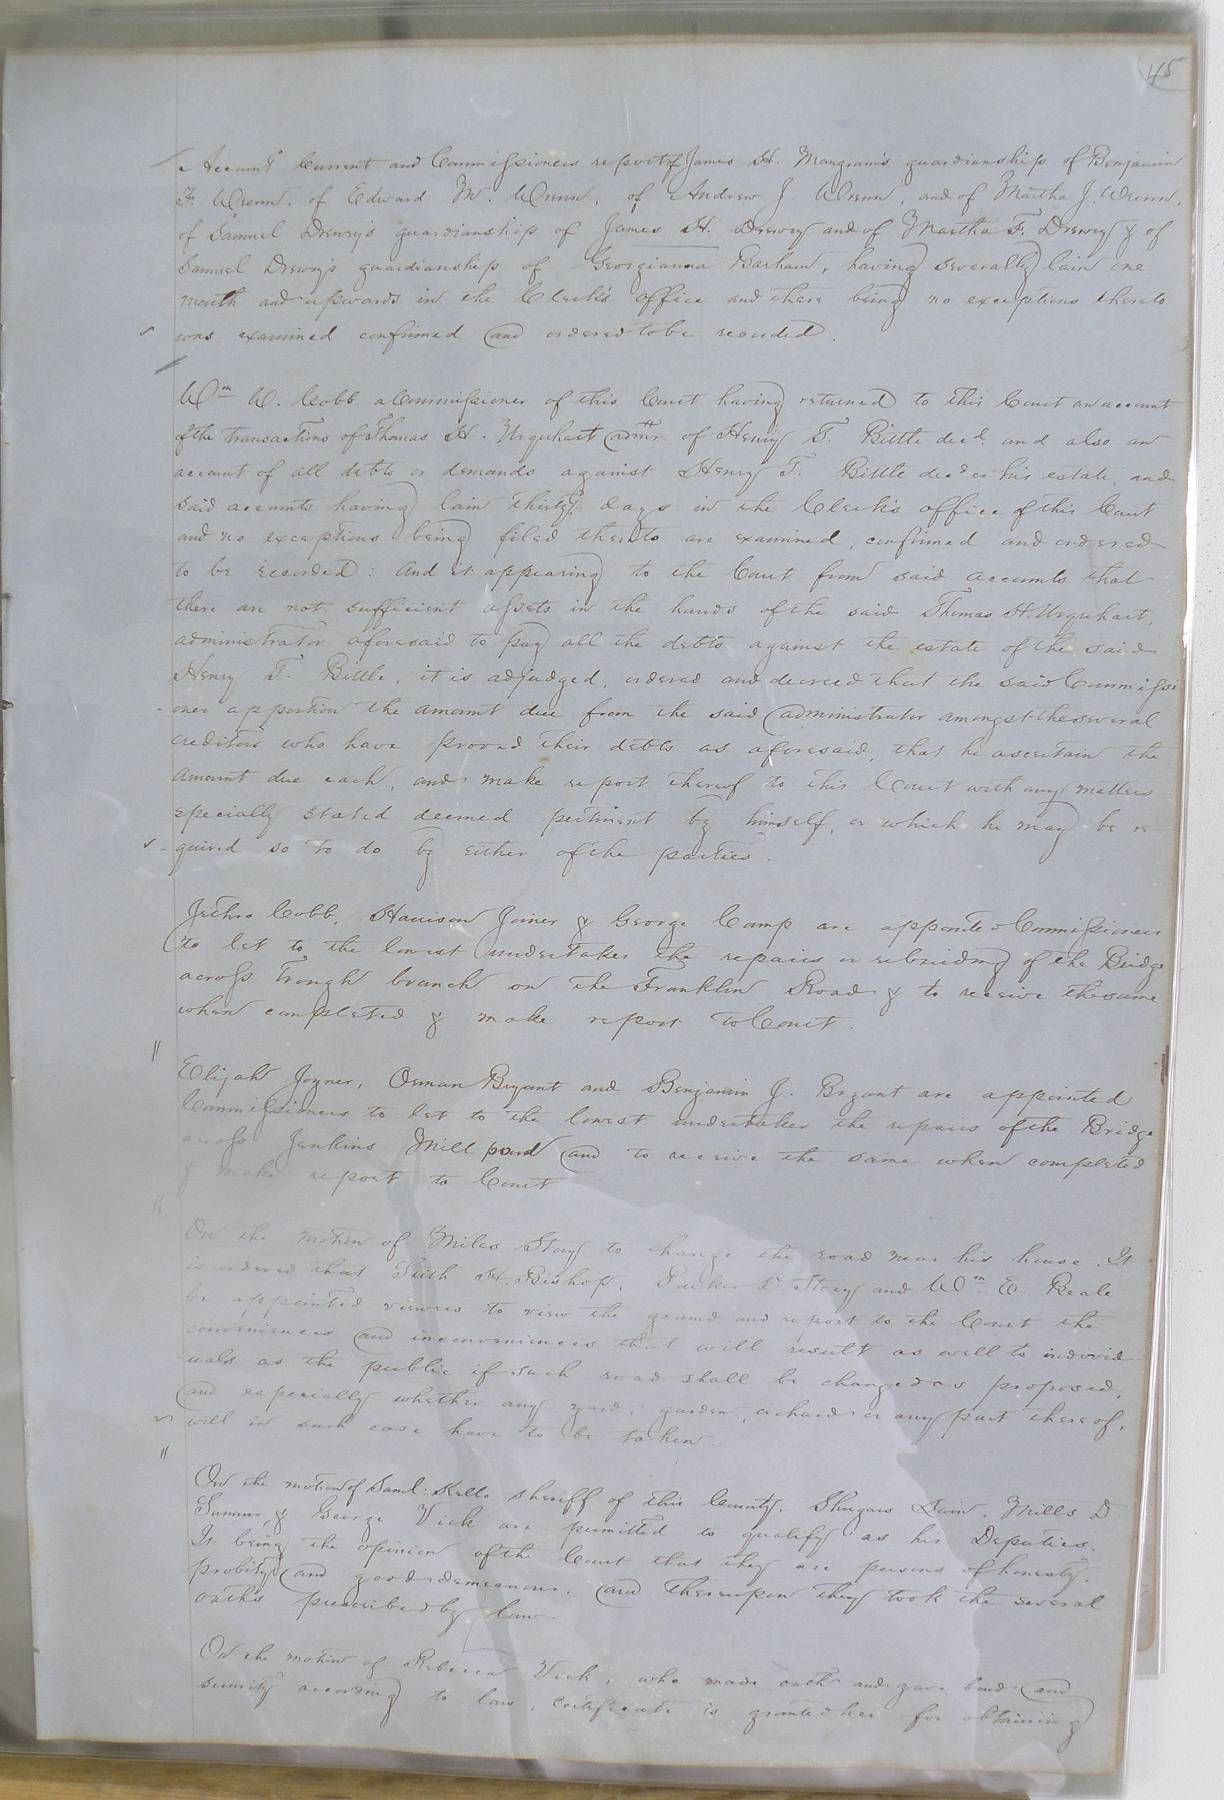 45
Account Current and Commissioners report of James H. Mangram's guardianship of Benjamin
F. Wrenn, of Edward M. Wrenn, of Andrew J. Wrenn, and of Martha J. Wrenn,
of Samuel Drewry's guardianship of James H. Drewry and of Martha F. Drewry & of
Samuel Drewry's guardianship of Georgianna Barham, having severally lain one
month and upwards in the Clerk's office and there being no exceptions thereto
was examined confirmed and ordered to be recorded.
Wm W. Cobb a Commissioner of this Court having returned to this Court an account
of the transactions of Thomas H. Urquhart admr. of Henry T. Bittle decd. and also an
account of all debts or demands against Henry T. Bittle decd or his estate, and
said accounts having lain thirty days in the Clerk's office of this Court
and no exceptions being filed thereto are examined, confirmed and ordered
to be recorded: And it appearing to the Court from said accounts that
there are not sufficient assets in the hands of the said Thomas H. Urquhart,
administrator aforesaid to pay all the debts against the estate of the said
Henry T. Bittle, it is adjudged, ordered and decreed that the said Commissi
oner apportion the amount due from the said administrator amongst the several
creditors who have proved their debts as aforesaid, that he ascertain the
amount due each, and make report thereof to this Court with any matters
specially stated deemed pertinent by himself, or which he may be re-
quired so to do by either of the parties.
Jethro Cobb, Harrison Joiner & George Camp are appointed Commissioners
to let to the lowest undertaker the repairs or rebuilding of the Bridge
across Trough branch on the Franklin Road & to receive the same
when completed & make report to Court.
Elijah Joyner, Orman Bryant and Benjamin J. Bryant are appointed
Commissioners to let to the lowest undertaker the repairs of the Bridge
across Jenkins Mill pond and to receive the same when completed
& make report to Court
On the motion of Miles Story to change the road near his house. It
is ordered that H. Bishop, Parker D. Story and Wm E. Beale
be appointed viewers to view the ground and report to the Court the
conveniences and inconveniences that will result as well to individ
uals as the public if such road shall be changed as proposed,
and especially whether any yard, garden, orchard or any part thereof,
will in such case have to be taken.
On the motion of Saml: Kello sheriff of this County. Lain, Mills D
Sumner, & George Vick are permitted to qualify as his Deputies.
It being the opinion of the Court that they are persons of honesty,
probity and good demeanour, and thereupon they took the several
oaths prescribed by law.
On the motion of Rebecca Vick, who made oath and gave bond and
security according to law, certificate is granted her for obtaining